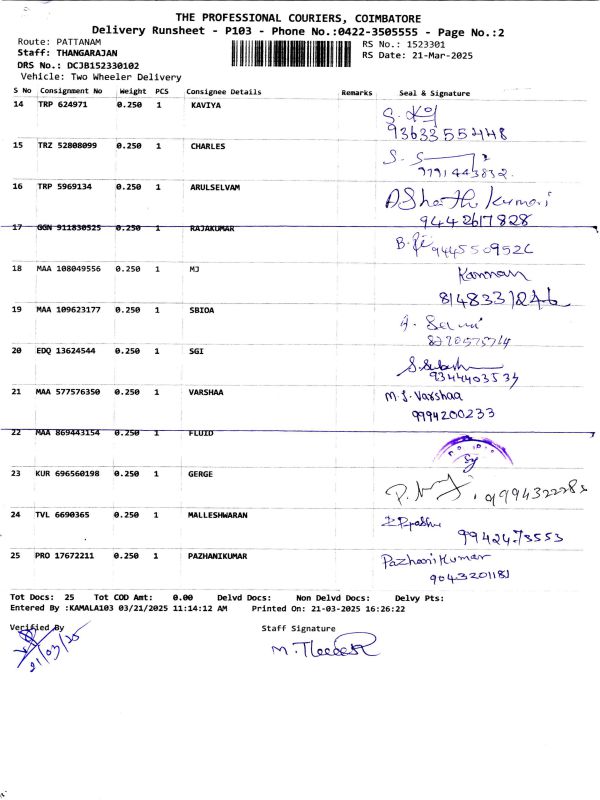 THE PROFESSIONAL COURIERS, COIMBATORE
Delivery Runsheet - P103 - Phone No.:0422-3505555 - Page No.:2
Route: PATTANAM RS No.: 1523301
Staff: THANGARAJAN RS Date: 21-Mar-2025
DRS No.: DCJB152330102
Vehicle: Two Wheeler Delivery
S No Consignment No Weight PCS Consignee Details Remarks Seal & Signature
14 TRP 624971 0.250 1 KAVIYA
9363355448
15 TRZ 52808099 0.250 1 CHARLES
9791443832.
16 TRP 5969134 0.250 1 ARULSELVAM
9442617828
17 GGN 911830525 0.250 1 RAJAKUMAR
9445509526
18 MAA 108049556 0.250 1 MJ Kannan
8148331246
19 MAA 109623177 0.250 1 SBIOA
20 EDQ 13624544 0.250 1 SGI
9344403534
21 MAA 577576350 0.250 1 VARSHAA M.S. Varshaa
9994200233
22 MAA 869443154 0.250 1 FLUID
23 KUR 696560198 0.250 1 GERGE
24 TVL 6690365 0.250 1 MALLESHWARAN
9942473553
25 PRO 17672211 0.250 1 PAZHANIKUMAR Pazhanikumar
Tot Docs: 25 Tot COD Amt: 0.00 Delvd Docs: Non Delvd Docs: Delvy Pts:
Entered By :KAMALA103 03/21/2025 11:14:12 AM Printed On: 21-03-2025 16:26:22
Verified By Staff Signature
21/03/25